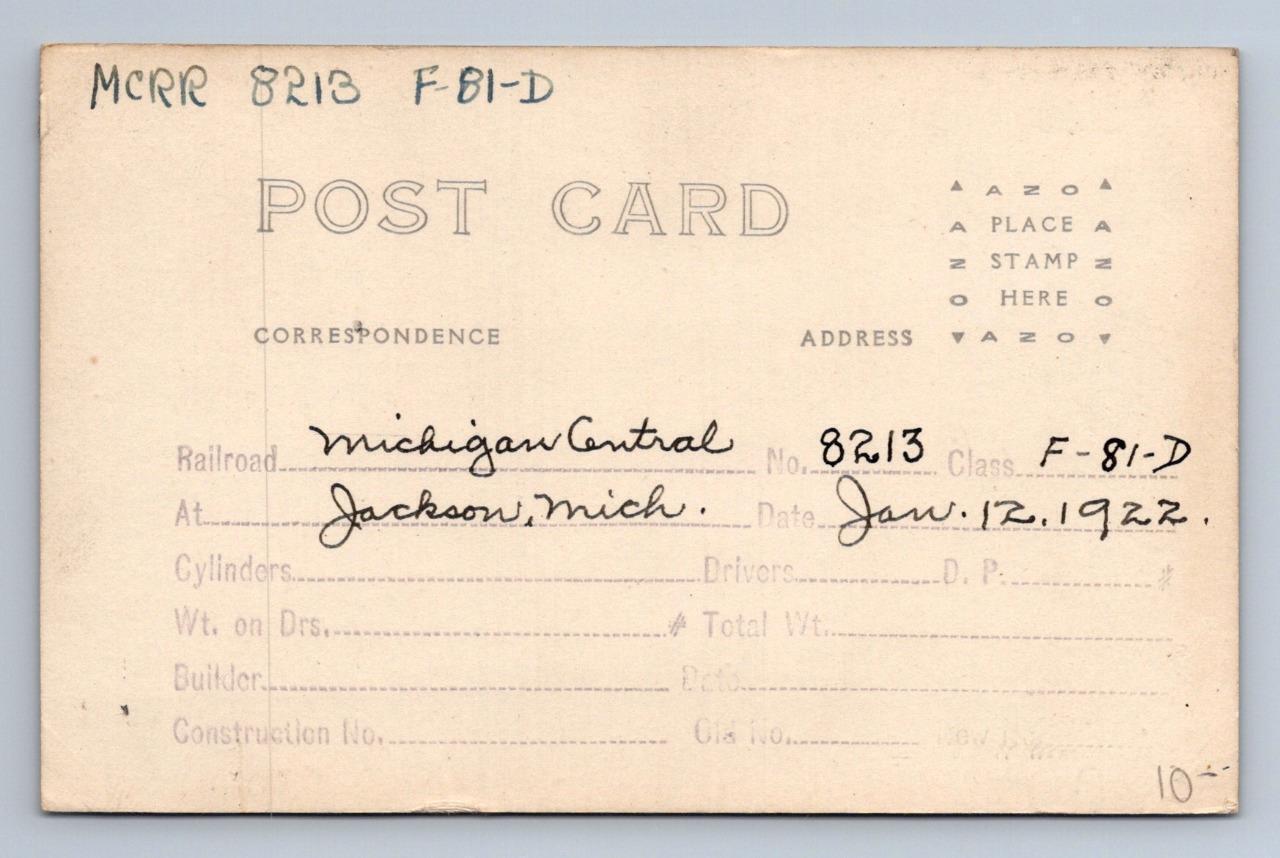 MCRR 8213 F-81-D
POST CARD
▲ AZO ▲
A PLACE A
Z STAMP Z
O HERE O
CORRESPONDENCE ADDRESS ▼ AZO ▼
Railroad Michigan Central No. 8213 Class F-81-D
At Jackson, Mich. Date Jan. 12. 1922.
Cylinders Drivers D. P. #
Wt. on Drs. # Total Wt.
Builder Date
Construction No. Old No. New
10-